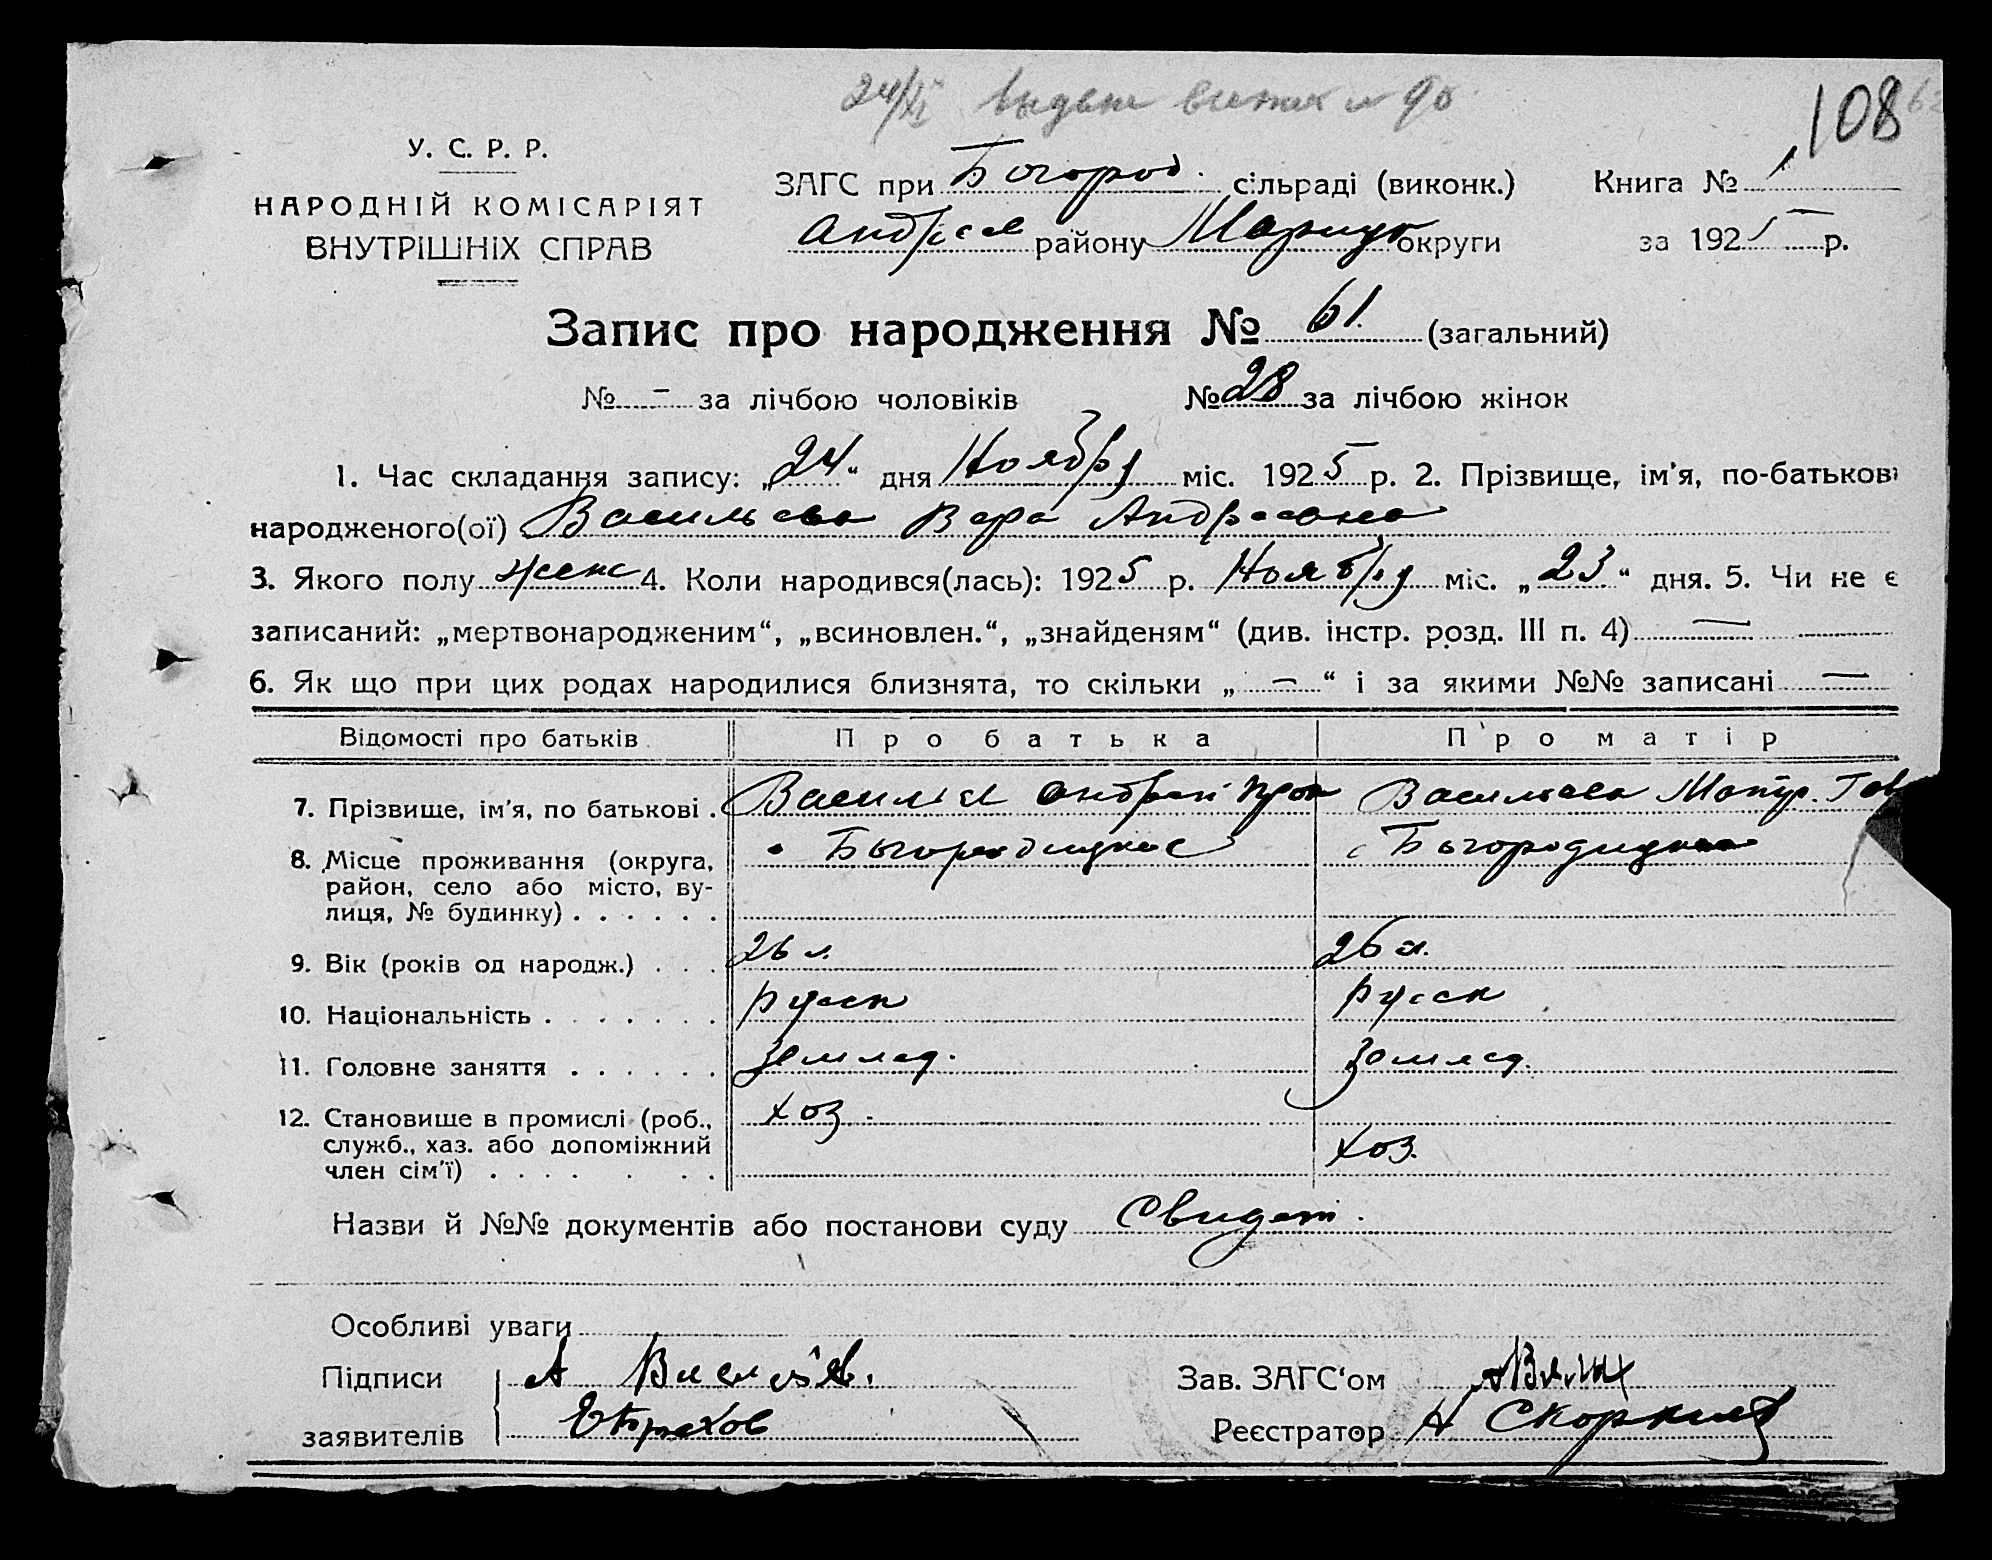 24/XI
108
У. С. Р. Р.
НАРОДНІЙ КОМІСАРІЯТ
ВНУТРІШНІХ СПРАВ
ЗАГС при Богород. сільраді (виконк.) Книга № 1
Андреев району Мариуп округи за 1925 р.
Запис про народження № 61 (загальний)
№ - за лічбою чоловіків № 28 за лічбою жінок
1. Час складання запису: „24“ дня Ноября міс. 1925 р. 2. Прізвище, ім'я, по-батькові
народженого(ої) Васильева Вера Андреевна
3. Якого полу женс 4. Коли народився(лась): 1925 р. Ноября міс. „23“ дня. 5. Чи не є
записаний: „мертвонародженим“, „всиновлен.“, „знайденям“ (див. інстр. розд. III п. 4) —
6. Як що при цих родах народилися близнята, то скільки „ — “ і за якими №№ записані —
Відомості про батьків Про батька Про матір
7. Прізвище, ім'я, по батькові . Васильев Андрей Прок Васильева Матр. Гав
8. Місце проживання (округа, с Богородицкое с Богородицкое
район, село або місто, ву-
лиця, № будинку) . . . . . .
9. Вік (років од народж.) . . . 26 л. 26 л.
10. Національність . . . . . . . русск русск
11. Головне заняття . . . . . . землед. землед.
12. Становище в промислі (роб., хоз.
служб., хаз. або допоміжний хоз.
член сім'ї) . . . . . . .
Назви й №№ документів або постанови суду Свидет.
Особливі уваги
Підписи А Васильев. Зав. ЗАГС'ом
заявителів Реєстратор